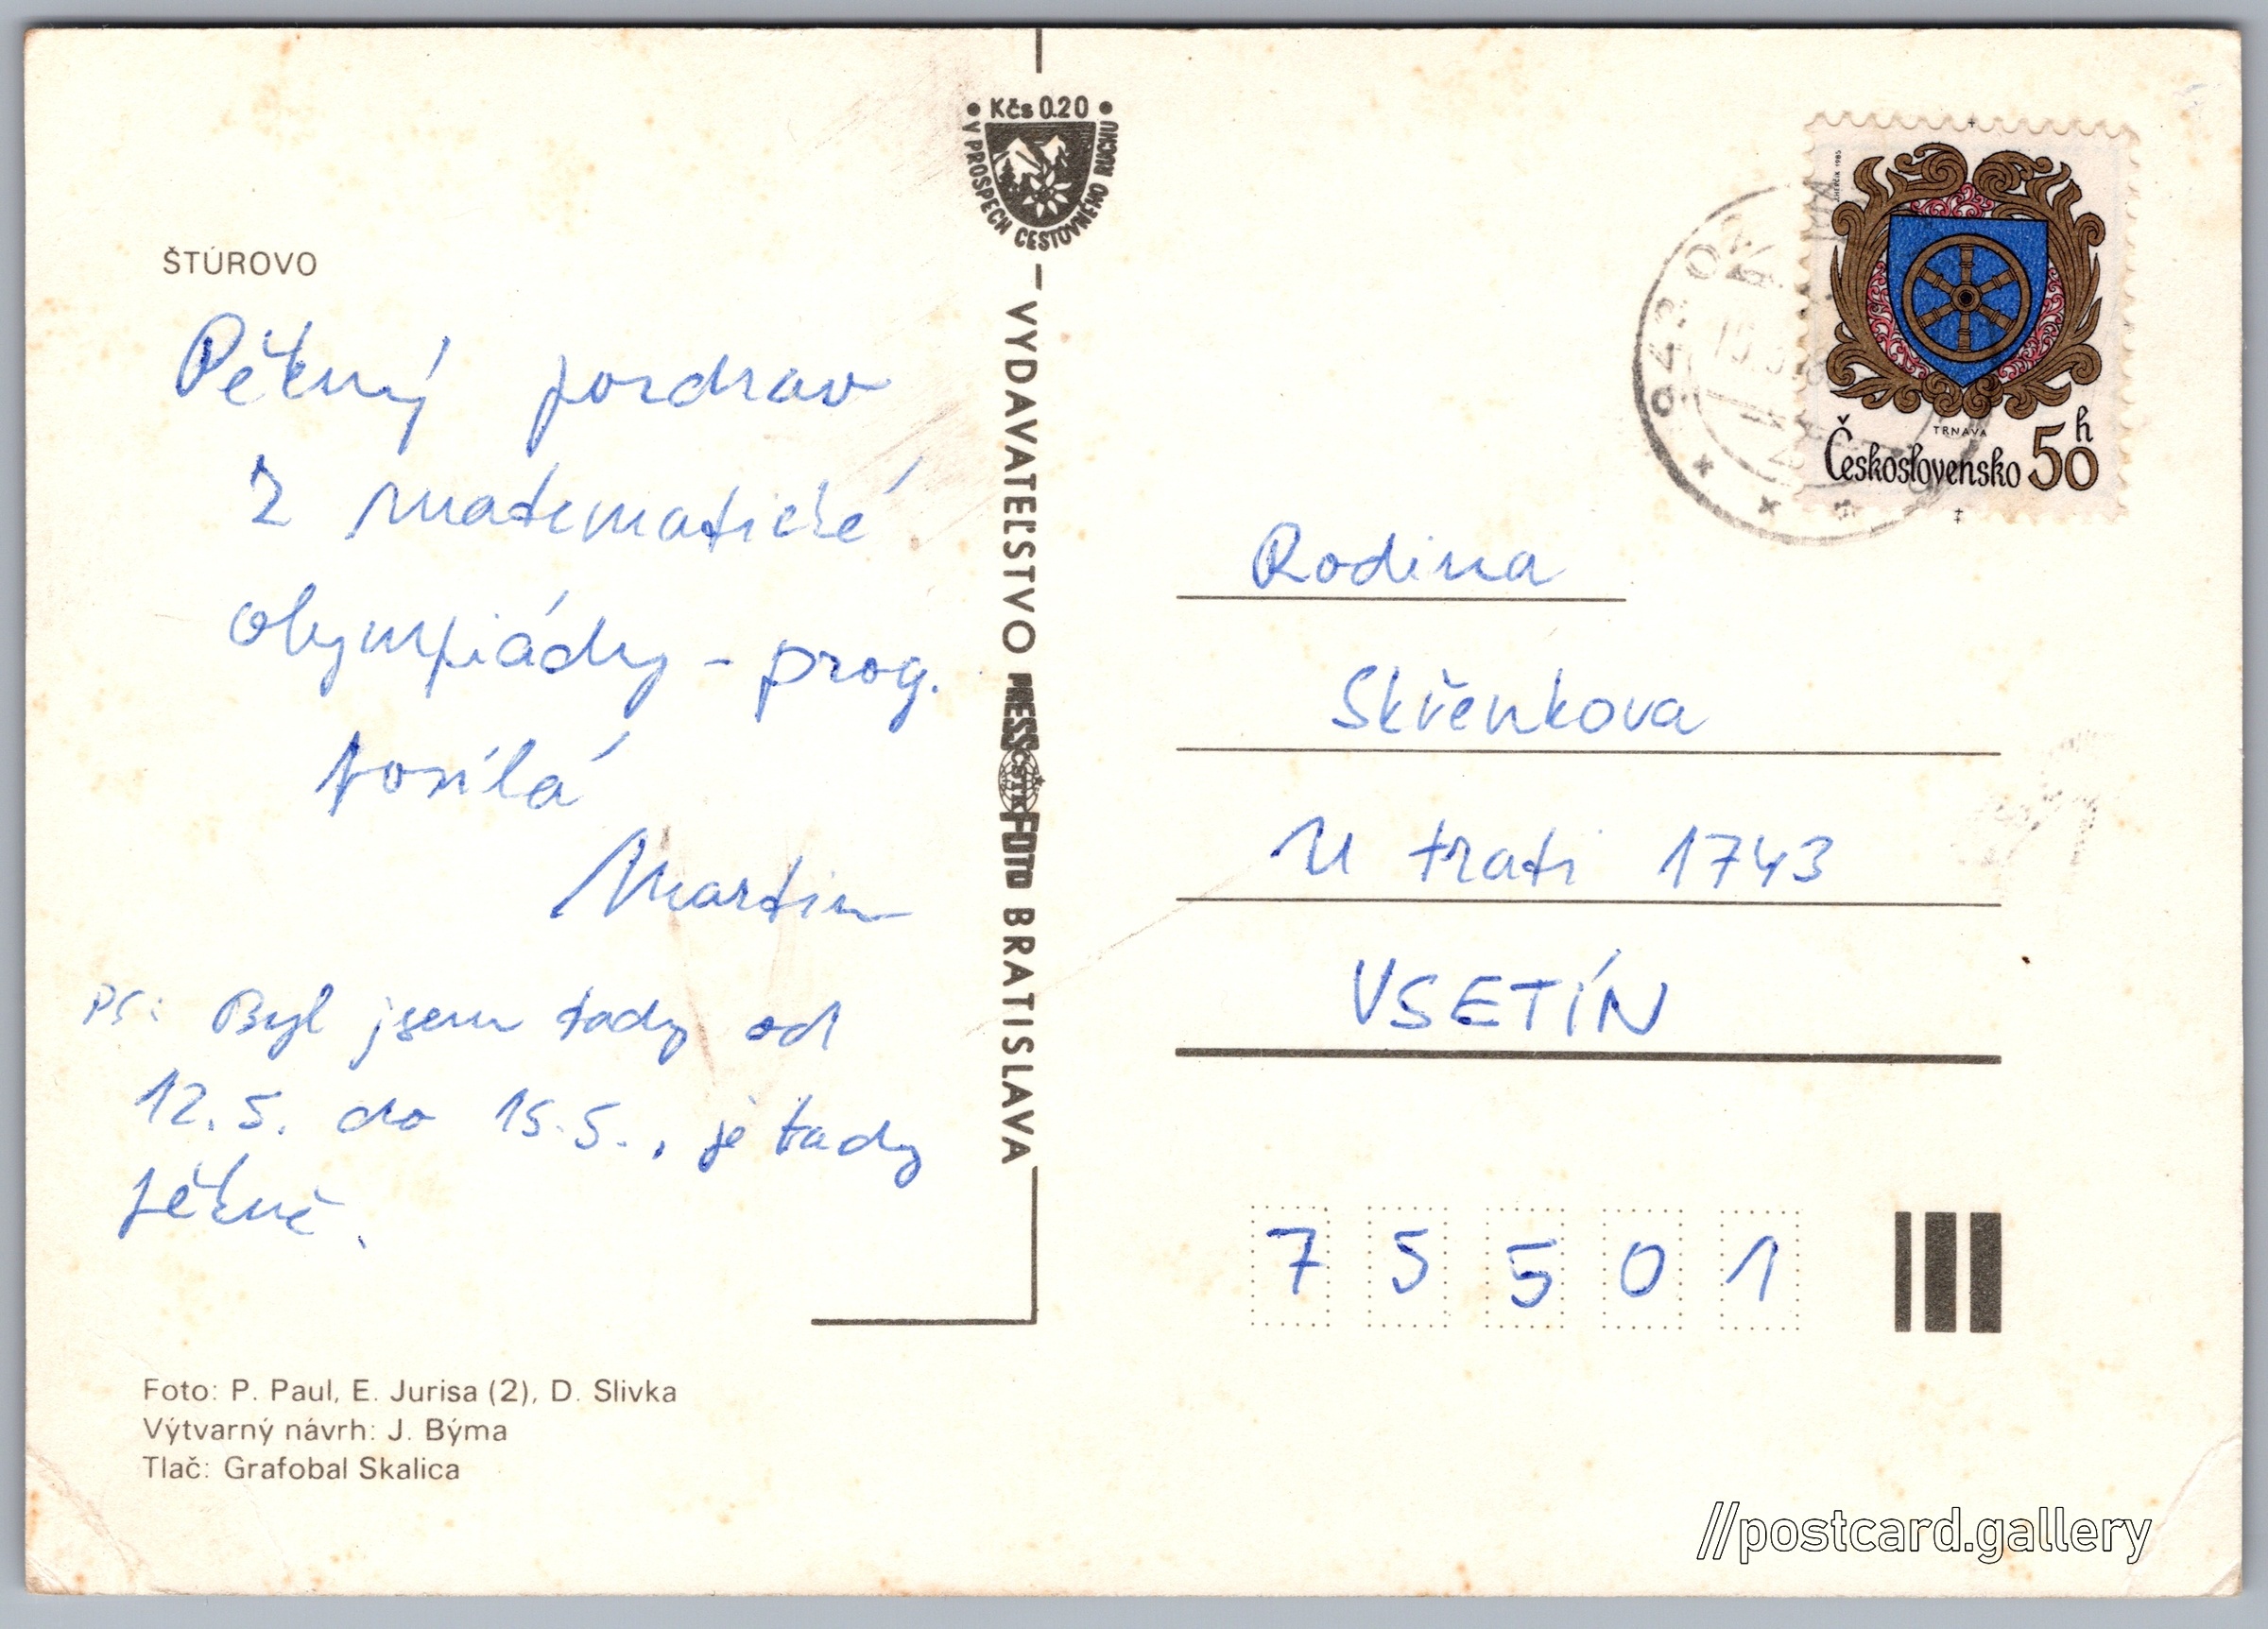 ŠTÚROVO
Pěkný pozdrav
z matematické
olympiády - prog.
posílá
Martin
PS: Byl jsem tady od
12.5. do 15.5., je tady
pěkně.
Foto: P. Paul, E. Jurisa (2), D. Slivka
Výtvarný návrh: J. Býma
Tlač: Grafobal Skalica
Kčs 0.20
V PROSPECH CESTOVNÉHO RUCHU
VYDAVATEĽSTVO PRESSFOTO BRATISLAVA
ČSTK
TRNAVA
Československo 50 h
Rodina
Skřenkova
U trati 1743
VSETÍN
7 5 5 0 1
//postcard.gallery